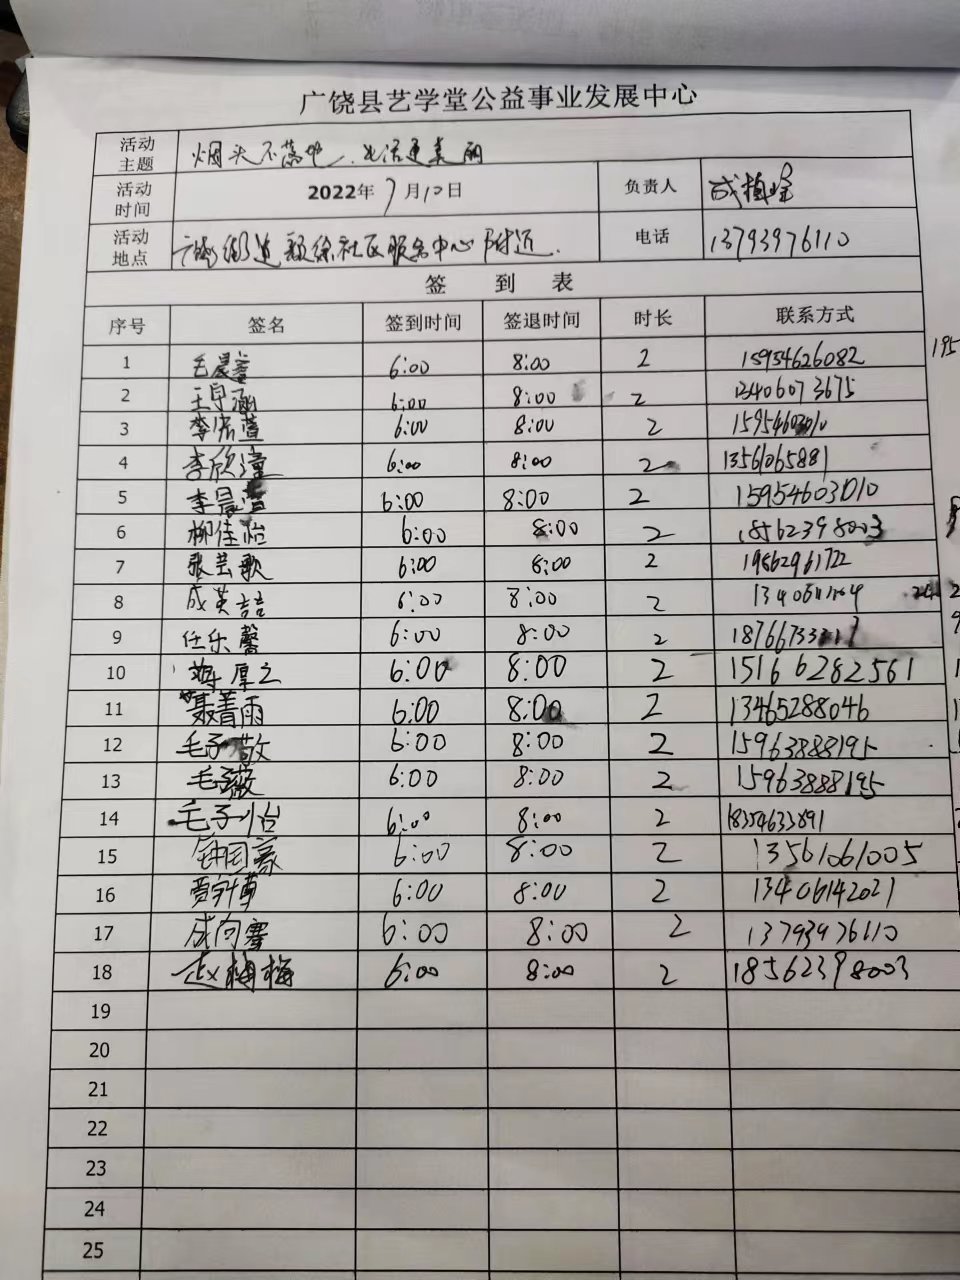 广饶县艺学堂公益事业发展中心
活动主题 烟头不落地、生活更美丽
活动时间 2022年7月10日 负责人 成
活动地点 广饶街道颜徐社区服务中心附近. 电话 13793976110
签 到 表
序号 签名 签到时间 签退时间 时长 联系方式
1 毛晨 6:00 8:00 2 15954626082
2 王宇涵 6:00 8:00 2 13406073675
3 李 萱 6:00 8:00 2
4 李欣潼 6:00 8:00 2 13561065881
5 李晨 6:00 8:00 2 15954603010
6 柳佳怡 6:00 8:00 2 18562398003
7 张芸歌 6:00 8:00 2 19862961722
8 成英喆 6:00 8:00 2
9 任乐馨 6:00 8:00 2
10 厚之 6:00 8:00 2 15166282561
11 聂菁雨 6:00 8:00 2 13465288046
12 毛子敬 6:00 8:00 2 15963888195
13 毛子薇 6:00 8:00 2 15963888195
14 毛子怡 6:00 8:00 2 18354633891
15 钟国豪 6:00 8:00 2 13561061005
16 贾 博 6:00 8:00 2 13406142021
17 成向骞 6:00 8:00 2 13793976110
18 赵梅梅 6:00 8:00 2 18562398003
19
20
21
22
23
24
25